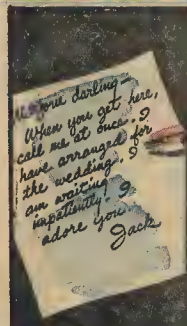 darling—
When you get here,
call me at once. I
have arranged for
the wedding. I
am waiting
impatiently. I
adore you
Jack